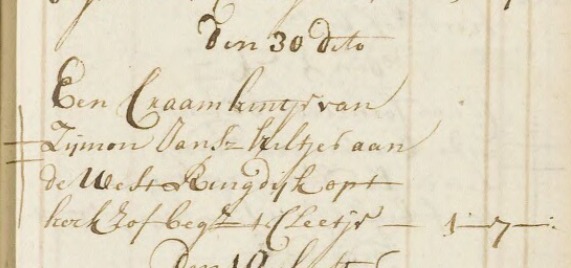 Den 30 dito
Een Craamkintje van
Zijmon Jansz aan
de West Ringdijk opt
kerkhof begr t Cleetje — 1—7—: